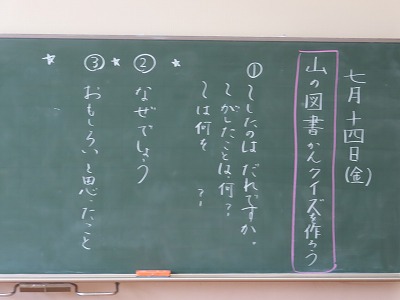 七月十四日(金)
山の図書かんクイズを作ろう
① 〜したのはだれですか。
〜がしたことは何?
〜は何を ?
② なぜでしょう
③ おもしろいと思ったこと